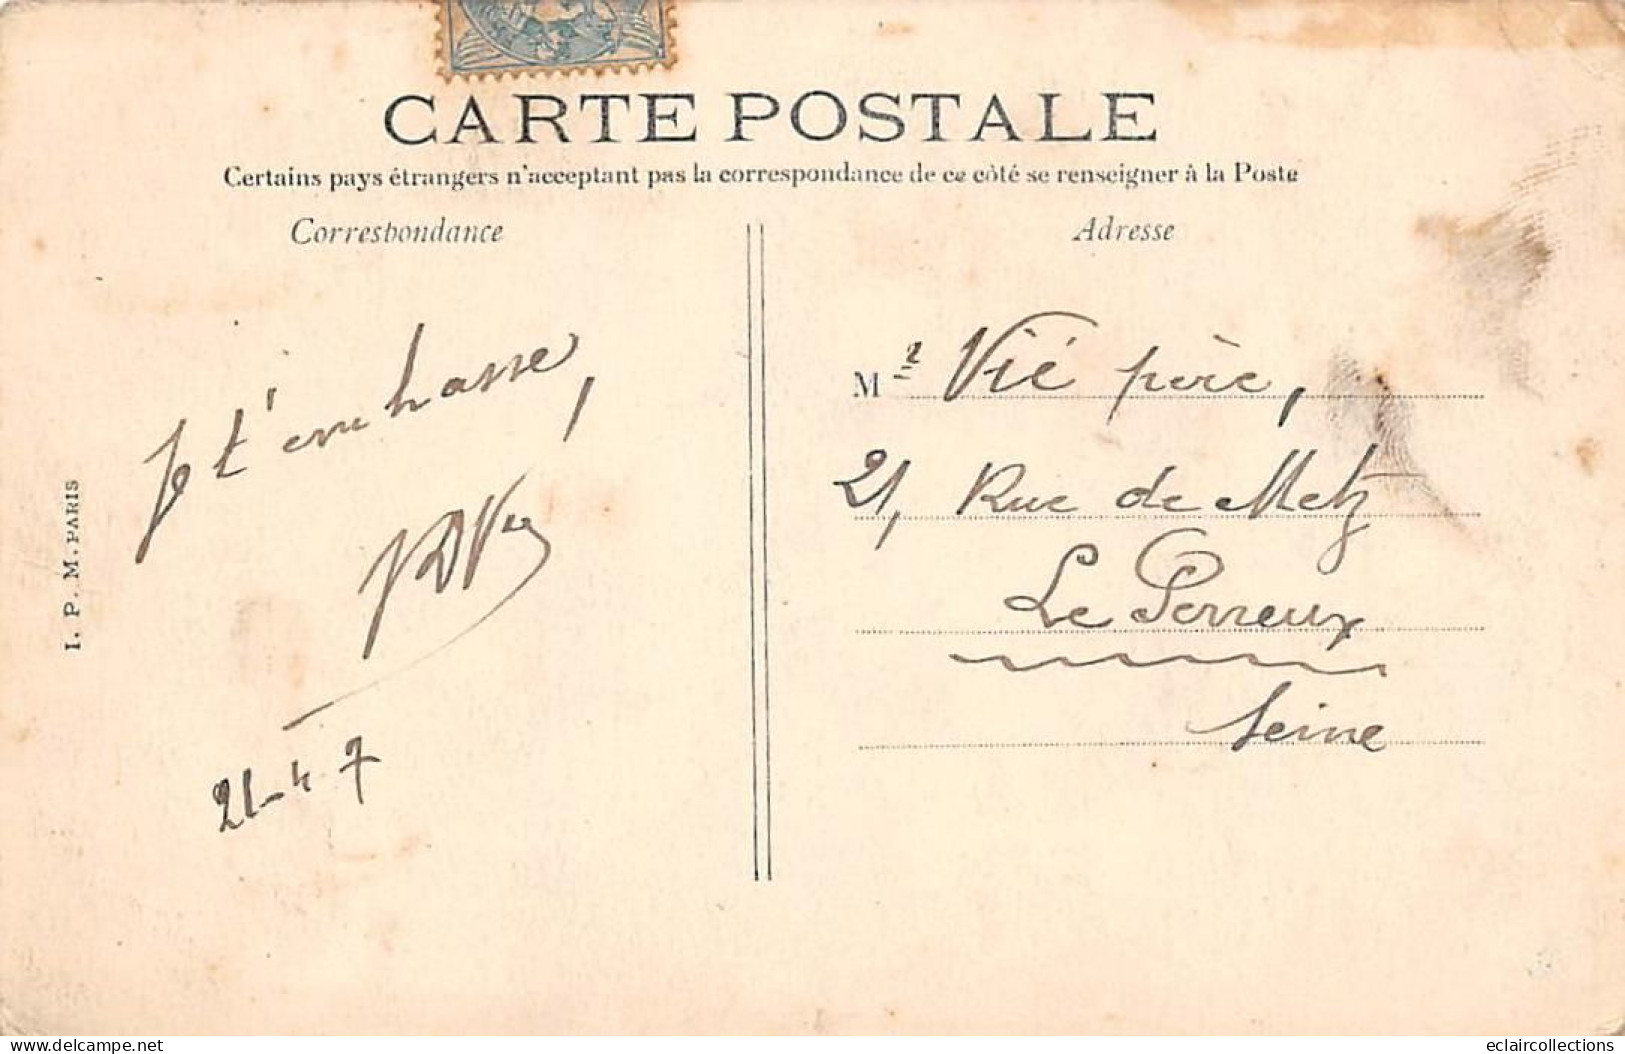 CARTE POSTALE
Certains pays étrangers n'acceptant pas la correspondance de ce côté se renseigner à la Poste
Correspondance
Adresse
Je t'embrasse,
21-4 7
I. P. M. PARIS
Mr Vié père,
21, Rue de Metz
Le Perreux
Seine
delcampe.net
eclaircollections